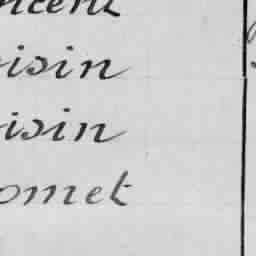 ncent
isin
isin
omet